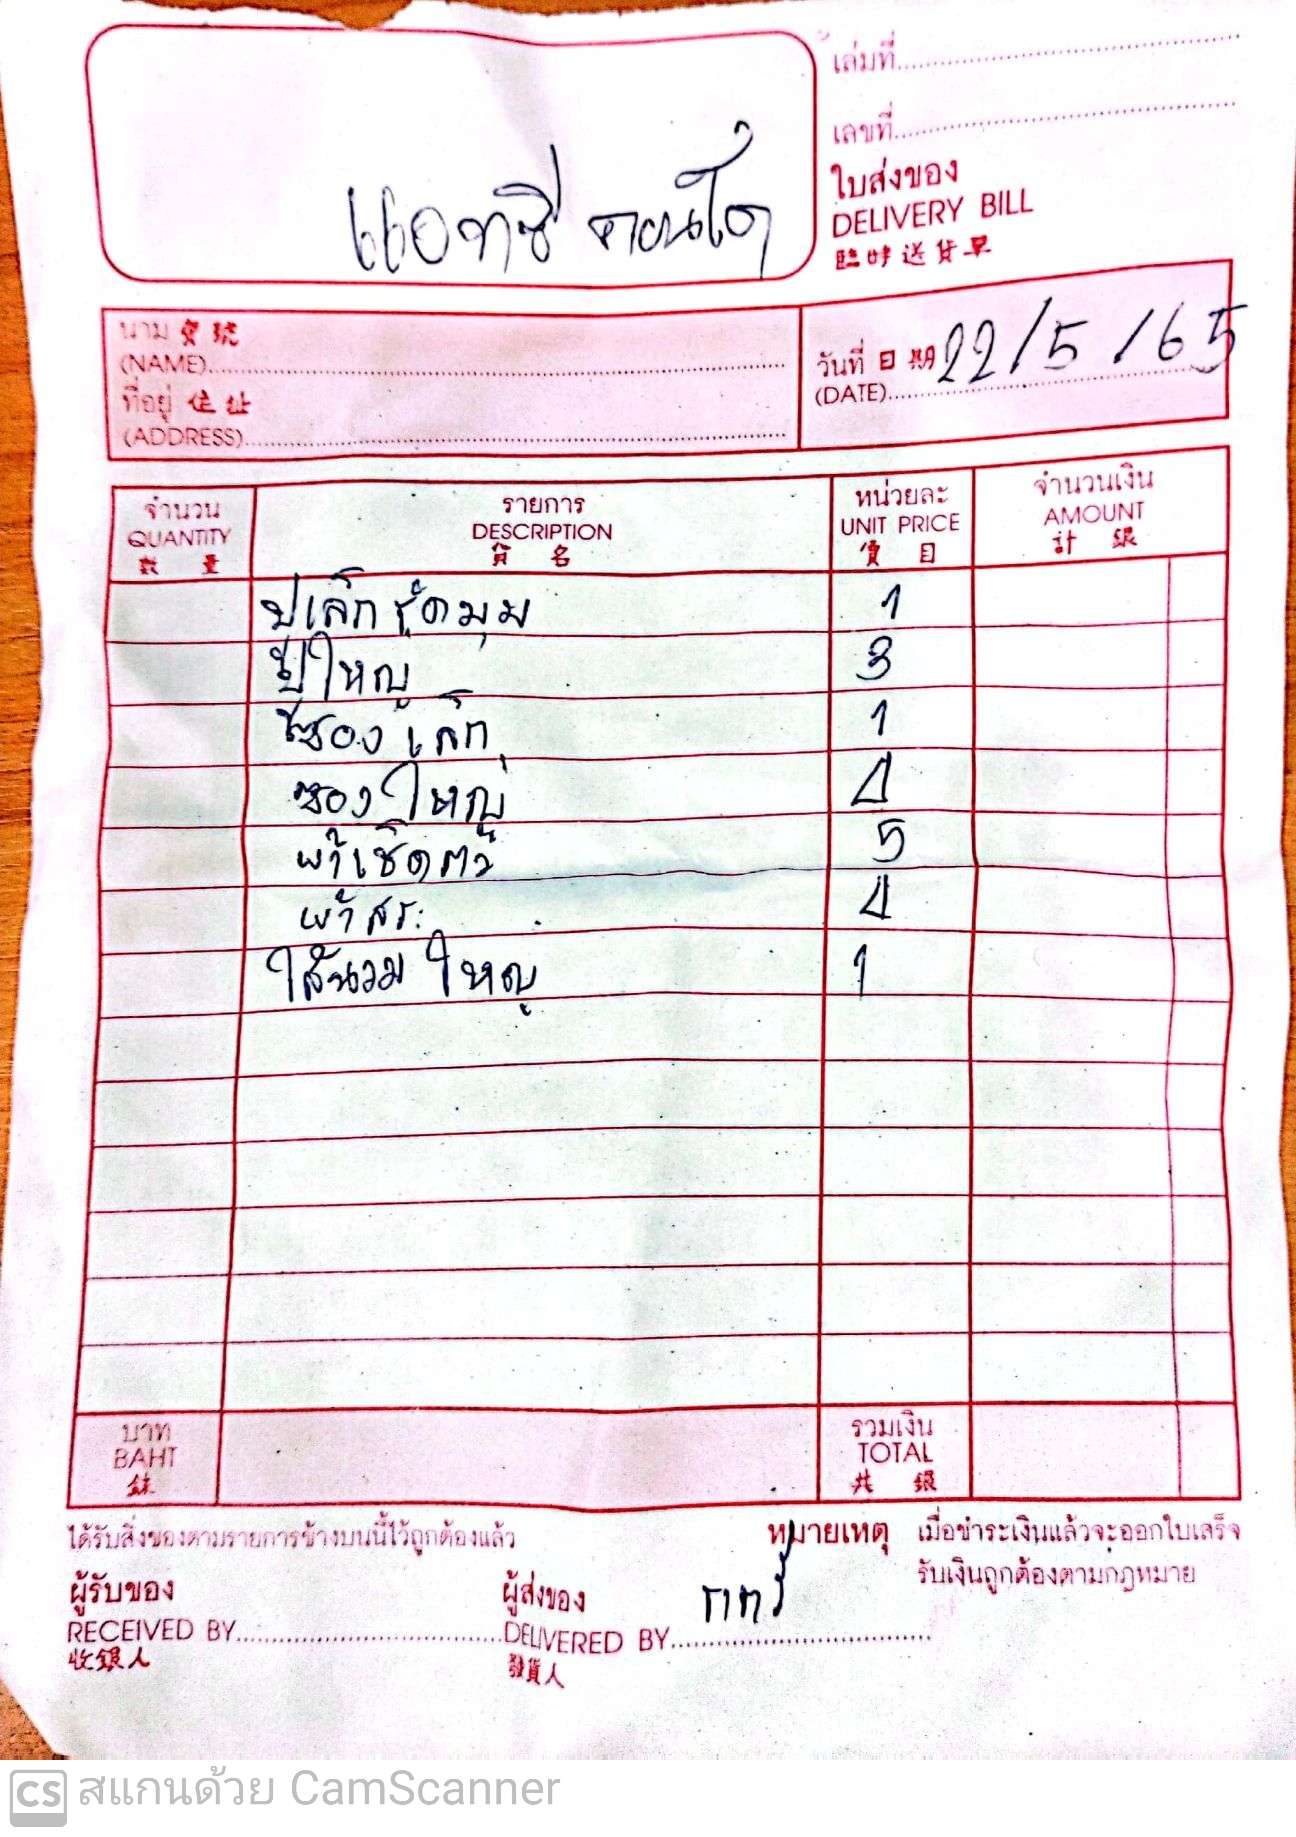 เล่มที่
เลขที่
ใบส่งของ
DELIVERY BILL
臨時送貨單
แอทซี คอนโด
นาม 寶號
(NAME)
ที่อยู่ 住址
(ADDRESS)
วันที่ 日期 22/5/65
(DATE)
จำนวน รายการ หน่วยละ จำนวนเงิน
QUANTITY DESCRIPTION UNIT PRICE AMOUNT
數量 貨名 價目 計銀
ปูเล็ก รัดมุม 1
ปูใหญ่ 3
ซองเล็ก 1
ซองใหญ่ 4
ผ้าเช็ดตัว 5
ผ้าสระ 4
ใส้นวม ใหญ่ 1
บาท รวมเงิน
BAHT TOTAL
銖 共銀
ได้รับสิ่งของตามรายการข้างบนนี้ไว้ถูกต้องแล้ว
หมายเหตุ เมื่อชำระเงินแล้วจะออกใบเสร็จ
รับเงินถูกต้องตามกฎหมาย
ผู้รับของ ผู้ส่งของ
RECEIVED BY DELIVERED BY
收銀人 發貨人
CS สแกนด้วย CamScanner